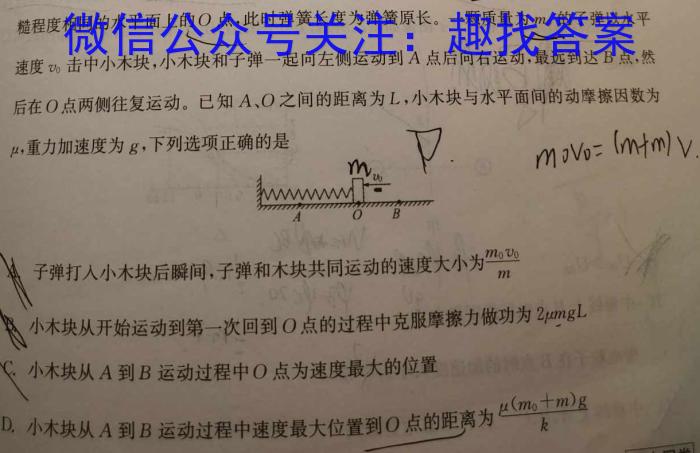 糙程度相同的水平面上的O点,此时弹簧长度为弹簧原长。一颗质量为m₀的子弹以水平
微信公众号关注:趣找答案
速度v₀击中小木块,小木块和子弹一起向左侧运动到A点后向右运动,最远到达B点,然
后在O点两侧往复运动。已知A、O之间的距离为L,小木块与水平面间的动摩擦因数为
μ,重力加速度为g,下列选项正确的是
m₀v₀=(m+m)v
m
v₀
A O B
A. 子弹打入小木块后瞬间,子弹和木块共同运动的速度大小为m₀v₀/m
B. 小木块从开始运动到第一次回到O点的过程中克服摩擦力做功为2μmgL
C. 小木块从A到B运动过程中O点为速度最大的位置
D. 小木块从A到B运动过程中速度最大位置到O点的距离为μ(m₀+m)g/k